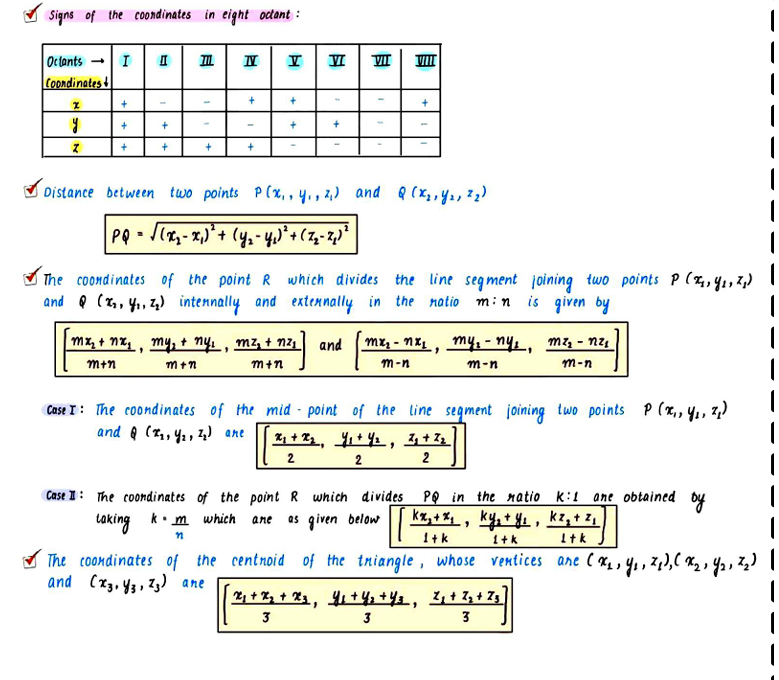 Signs of the coordinates in eight octant :
Octants → I II III IV V VI VII VIII
Coordinates↓
x + − − + + − − +
y + + − − + + − −
z + + + + − − − −
Distance between two points P(x₁, y₁, z₁) and Q(x₂, y₂, z₂)
PQ = √(x₂-x₁)² + (y₂-y₁)² + (z₂-z₁)²
The coordinates of the point R which divides the line segment joining two points P(x₁, y₁, z₁)
and Q (x₂, y₂, z₂) internally and externally in the ratio m:n is given by
[mx₂ + nx₁ / m+n , my₂ + ny₁ / m+n , mz₂ + nz₁ / m+n] and [mx₂ - nx₁ / m-n , my₂ - ny₁ / m-n , mz₂ - nz₁ / m-n]
Case I : The coordinates of the mid - point of the line segment joining two points P(x₁, y₁, z₁)
and Q (x₂, y₂, z₂) are [x₁ + x₂ / 2 , y₁ + y₂ / 2 , z₁ + z₂ / 2]
Case II : The coordinates of the point R which divides PQ in the ratio K:1 are obtained by
taking k = m/n which are as given below [kx₂+x₁ / 1+k , ky₂+y₁ / 1+k , kz₂+z₁ / 1+k]
The coordinates of the centroid of the triangle, whose vertices are (x₁, y₁, z₁),(x₂, y₂, z₂)
and (x₃, y₃, z₃) are [x₁ + x₂ + x₃ / 3 , y₁ + y₂ + y₃ / 3 , z₁ + z₂ + z₃ / 3]